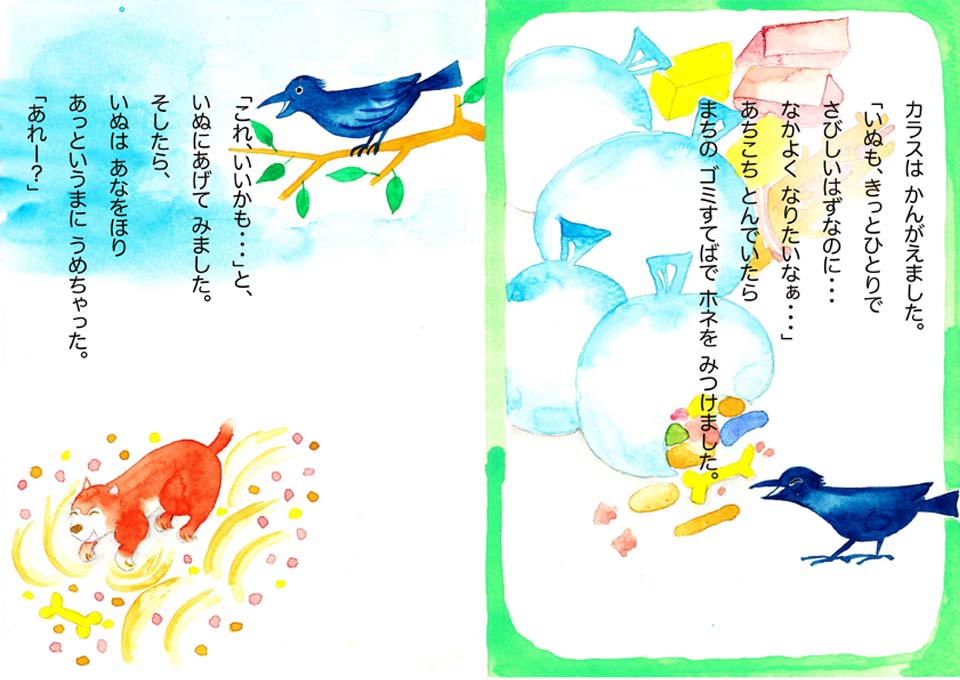 カラスは かんがえました。
「いぬも、きっとひとりで
さびしいはずなのに・・・
なかよく なりたいなぁ・・・」
あちこち とんでいたら
まちの ゴミすてばで ホネを みつけました。
「これ、いいかも・・・」と、
いぬにあげて みました。
そしたら、
いぬは あなをほり
あっというまに うめちゃった。
「あれー？」